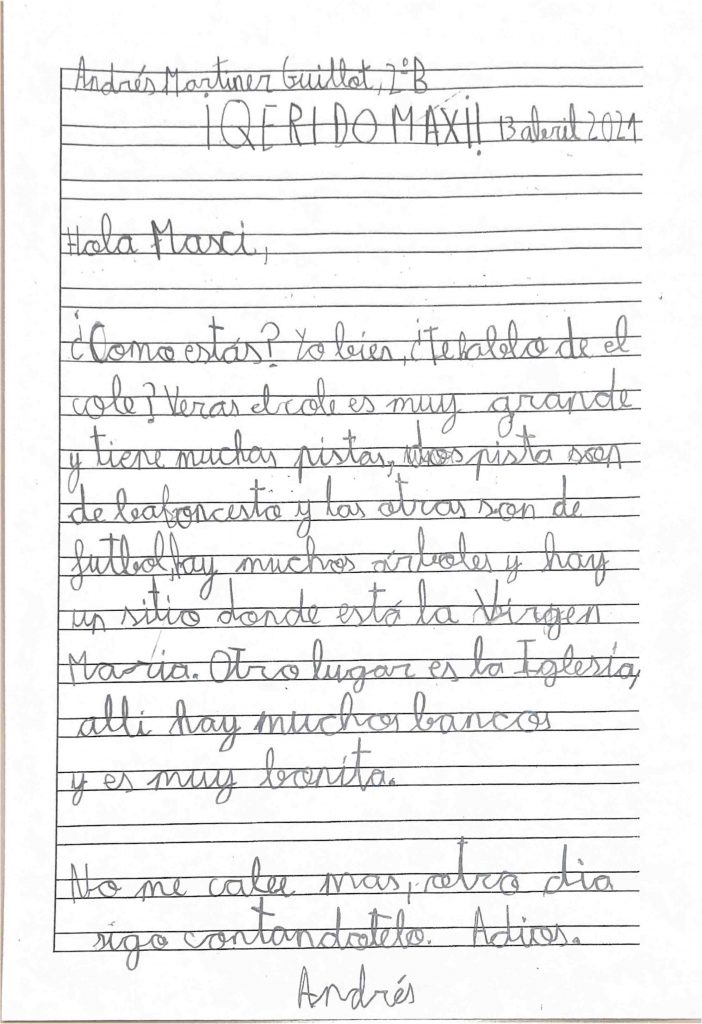 Andrés Martiner Guillot, 2ºB
¡QERIDO MAXI!! 13 abril 2021
Hola Maxi,
¿Como estás? Yo bien, ¿Te hablo de el
cole? Veras el cole es muy grande
y tiene muchas pistas, dos pista son
de baloncesto y las otras son de
futbol, hay muchos árboles y hay
un sitio donde está la Virgen
Maria. Otro lugar es la Iglesía,
alli hay muchos bancos
y es muy bonita.
No me cabe mas, otro dia
sigo contandotelo. Adios.
Andrés